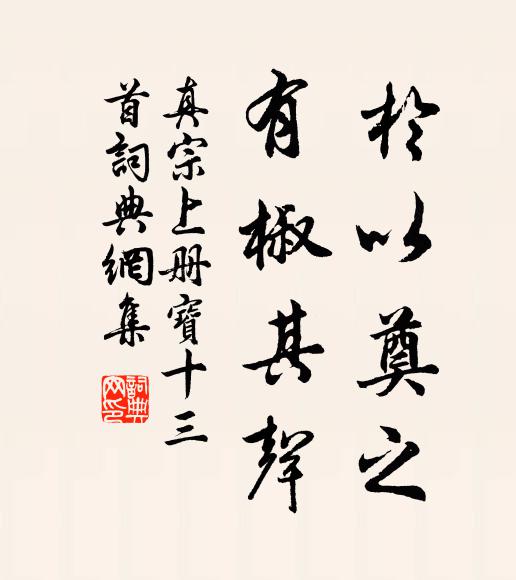 於以奠之
有椒其聲
真宗上册寶十三
首詞典網集
詞典網印